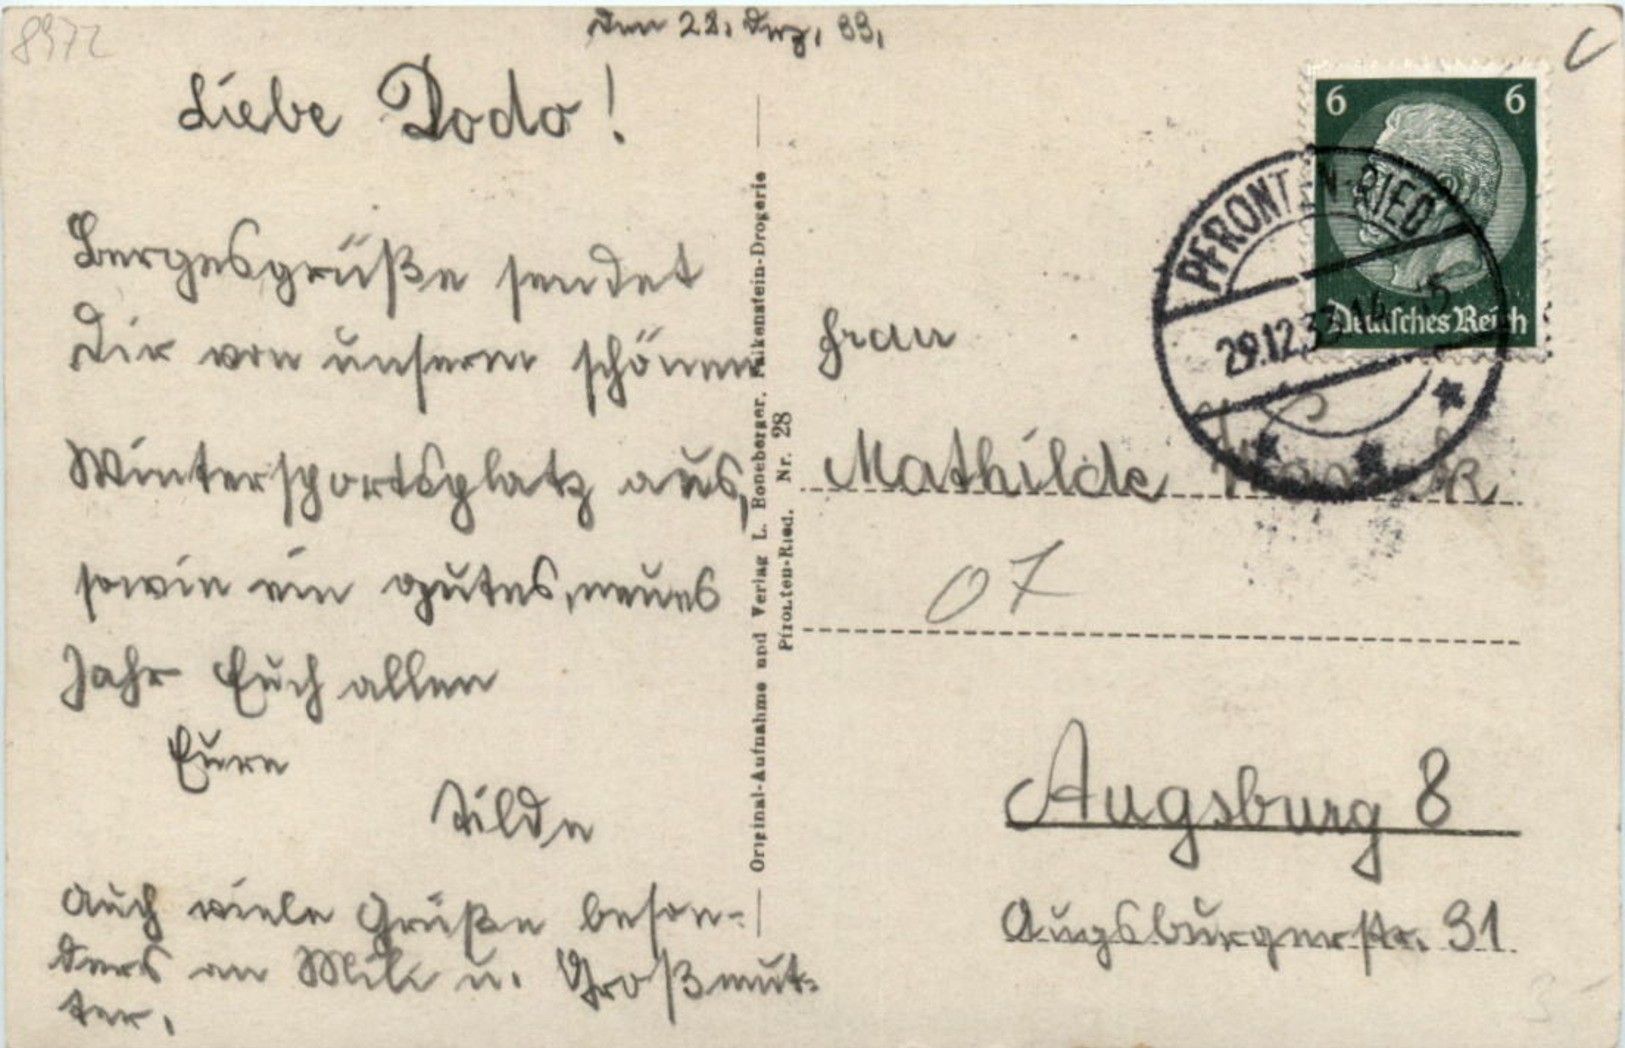 8972
den 28. Dez. 33.
Liebe Dodo!
Bergesgrüße sendet
Dir von unserem schönen
Wintersportsplatz aus,
sowie ein gutes, neues
Jahr Euch allen
Eure
Tilde
Auch viele Grüße beson-
ders an Mili u. Großmut-
ter.
Original-Aufnahme und Verlag L. Boneberger, Falkenstein-Drogerie
Pfronten-Ried. Nr. 28
6 6
Deutsches Reich
PFRONTEN-RIED
29.12.33
Frau
Mathilde
07
Augsburg 8
Augsburgerstr. 31